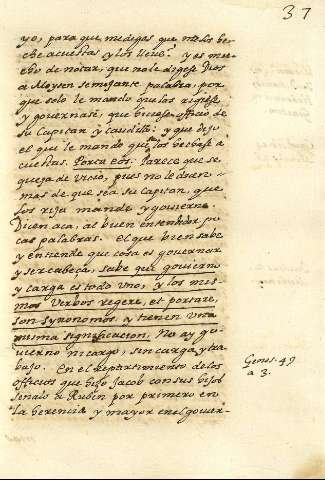 37
yo, para que me digas que me los he-
che acuestas y los lleve? y es mu-
cho de notar, que no le dijese Dios
a Moysen semejante palabra, por
que solo le mando que los rigiese,
y governase, que hiciese oficio de
su Capitan y Caudillo: y que dijo
el que le mando que los echase a
cuestas. Porta eos: Parece que se
queja de vicio, pues no le dicen
mas de que sea su Capitan, que
los rija mande y govierne.
Dicen aca, al buen entendedor po-
cas palabras. el que bien sabe
y entiende que cosa es governar
y ser cabeça, sabe que govierno
y carga es todo uno, y los mis-
mos Verbos regere, et portare,
son synonomos, y tienen una
misma significacion. No ay go-
vierno ni cargo, sin carga, y tra-
bajo. En el Repartimiento de los
officios que hiço Jacob con sus hijos
señalo a Ruben por primero en
la herencia y mayor en el gover-
Genes. 49
a 3.